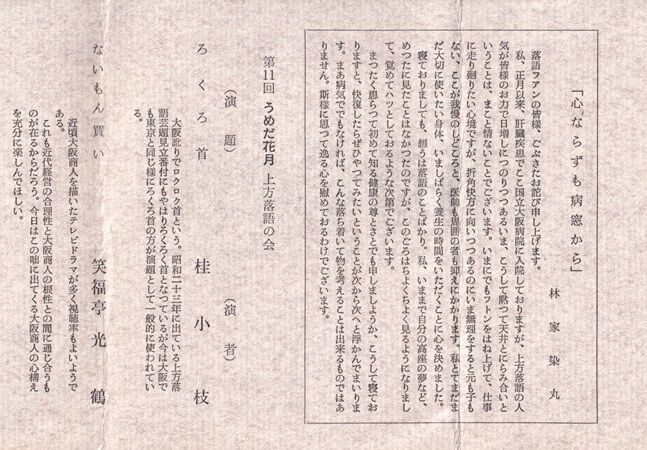 「心ならずも病窓から」
林家染丸
落語フアンの皆様、ごぶさたお詫び申し上げます。
私、正月以来、肝臓疾患でここ国立大阪病院に入院しておりますが、上方落語の人
気が皆様のお力で日増しにつのりつつあるいま、こうして黙って天井とにらみ合いと
いうことは、まこと情ないことでございます。いまにでもフトンをはね上げて、仕事
に走り廻りたい心境ですが、折角快方に向いつつあるのにいま無理をすると元も子も
ない、ここが我慢のしどころと、医師も周囲の者も抑えにかかります。私とてまだま
だ大切に使いたい身体、いましばらく養生の時間をいただくことに心を決めました。
寝ておりましても、想うは落語のことばかり。私、いままで自分の高座の夢など、
めつたに見たことはなかつたのですが、このごろはちよくちよく見るようになりまし
て、覚めてハッとしておるような次第でございます。
まつたく患らつて初めて知る健康の尊とさとでも申しましようか、こうして寝てお
りますと、快復したらぜひやつてみたいということが次から次へと浮かんでまいりま
す。まあ病気ででもなければ、こんな落ち着いて物を考えることは出来るものではあ
りません。斯様に思つて逸る心を慰めておるわけでございます。
第11回 うめだ花月 上方落語の会
(演題) (演者)
ろくろ首 桂小枝
大阪訛りでロクロク首という。昭和二十三年に出ている上方落
語芸題見立番付にもやはりろくろく首となつているが今は大阪で
も東京と同じ様にろくろ首の方が演題として一般的に使われてい
る。
ないもん買い 笑福亭光鶴
近頃大阪商人を描いたテレビドラマが多く視聴率もよいようで
ある。
これも近代経営の合理性と大阪商人の根性との間に通じ合うも
のが在るからだろう。今日はこの咄に出てくる大阪商人の心構え
を充分に楽しんでほしい。